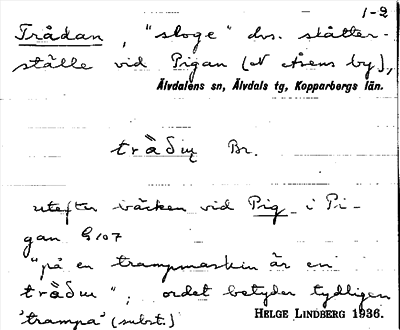 1-2
Trådan, "sloge" dvs. slåtter-
ställe vid Pigan (N Åsens by),
Älvdalens sn, Älvdals tg, Kopparbergs län.
Br.
utefter bäcken vid Pig i Pi-
gan G 107
"på en trampmaskin är en
"; ordet betyder tydligen
HELGE LINDBERG 1936.
'trampa' (subst.)